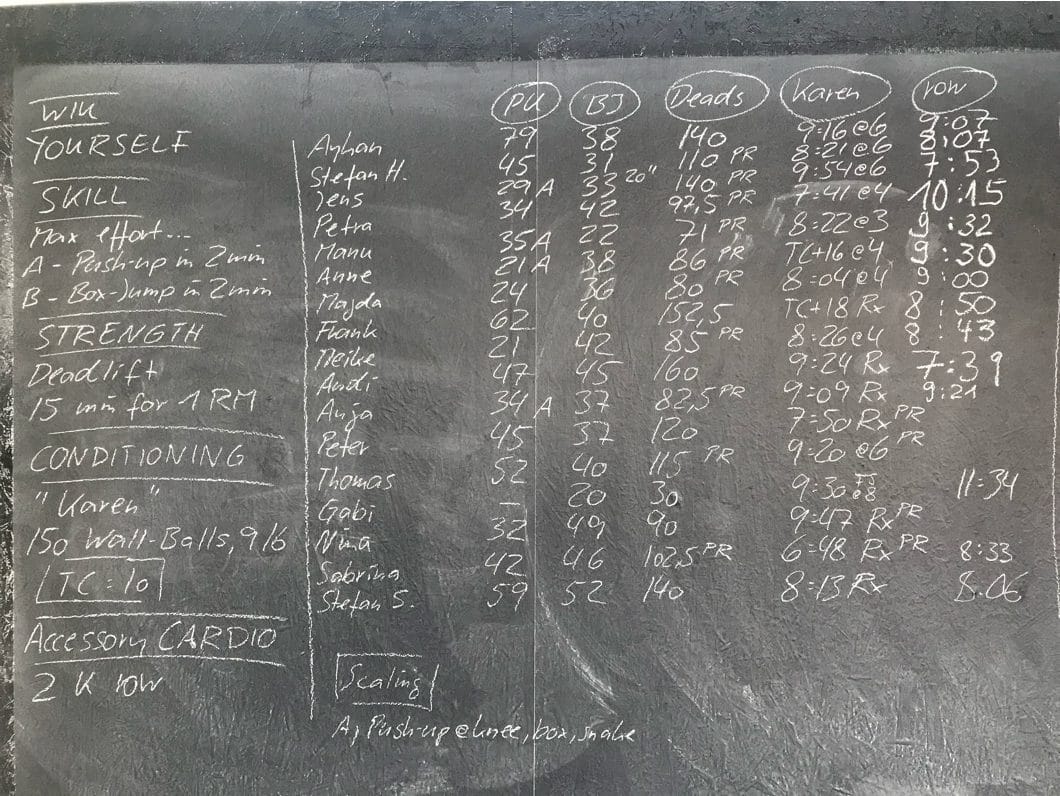 WIN
YOURSELF
SKILL
Max effort...
A - Push-up in 2min
B - Box-Jump in 2min
STRENGTH
Deadlift
15 min for 1 RM
CONDITIONING
"Karen"
150 Wall-Balls, 9/6
TC = 10
Accessory CARDIO
2 K row
PU BJ Deads Karen row
Ayhan 79 38 140 9:16 @6 9:07
Stefan H. 45 31 110 PR 8:21 @6 8:07
Jens 29 A 33 20" 140 PR 9:54 @6 7:53
Petra 34 42 97,5 PR 7:41 @4 10:15
Manu 35 A 22 71 PR 8:22 @3 9:32
Anne 21 A 38 86 PR TC+16 @4 9:30
Majda 24 36 80 PR 8:04 @4 9:00
Frank 62 40 152,5 TC+18 Rx 8:50
Meike 21 42 85 PR 8:26 @4 8:43
Andi 47 45 160 9:24 Rx 7:39
Anja 34 A 37 82,5 PR 9:09 Rx 9:21
Peter 45 37 120 7:50 Rx PR
Thomas 52 40 115 PR 9:20 @6 PR
Gabi – 20 30 9:30 @8 11:34
Nina 32 49 90 9:47 Rx PR
Sabrina 42 46 102,5 PR 6:48 Rx PR 8:33
Stefan S. 59 52 140 8:13 Rx 8:06
Scaling
A, Push-up @ knee, box, snake